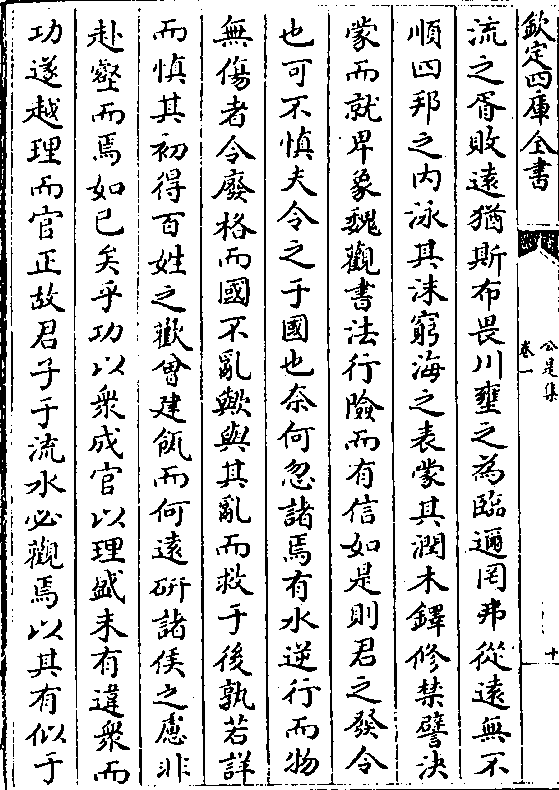 欽定四庫全書
公是集
卷一
十
流之胥敗遠猶斯布畏川壅之為臨邇罔弗從遠無不
順四邦之内泳其沫窮海之表蒙其潤木鐸修禁譬決
蒙而就卑象魏觀書法行險而有信如是則君之發令
也可不慎夫令之于國也奈何忽諸焉有水逆行而物
無傷者令廢格而國不亂歟與其亂而救于後孰若詳
而慎其初得百姓之歡會建瓴而何遠研諸侯之慮非
赴壑而焉如已矣乎功以衆成官以理盛未有違衆而
功遂越理而官正故君子于流水必觀焉以其有似于